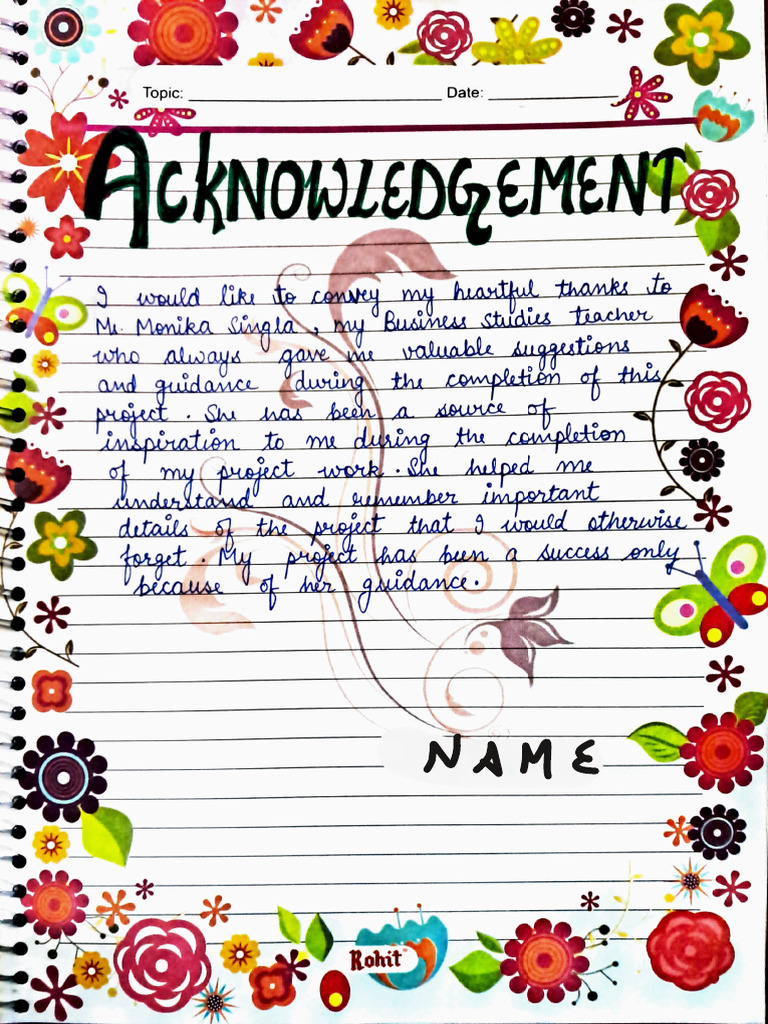 Topic: Date:
ACKNOWLEDGEMENT
I would like to convey my heartful thanks to
Mr. Monika Singla, my Business Studies teacher
who always gave me valuable suggestions
and guidance during the completion of this
project. She has been a source of
inspiration to me during the completion
of my project work. She helped me
understand and remember important
details of the project that I would otherwise
forget. My project has been a success only
because of her guidance.
NAME
Rohit